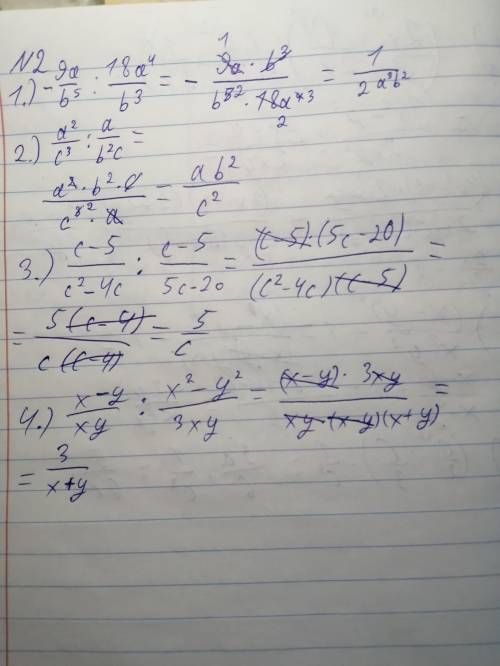 N2
1.) -9a/b⁵ : 18a⁴/b³ = - 9a · b³/b⁵ ² · 18a⁴ ³ 1 2 = 1/2a³b²
2.) a²/c³ : a/b²c =
a² · b² · c/c³ ² · a = ab²/c²
3.) c-5/c²-4c : c-5/5c-20 = (c-5)·(5c-20)/(c²-4c)(c-5) =
= 5(c-4)/c(c-4) = 5/c
4.) x-y/xy : x²-y²/3xy = (x-y) · 3xy/xy·(x-y)(x+y) =
= 3/x+y